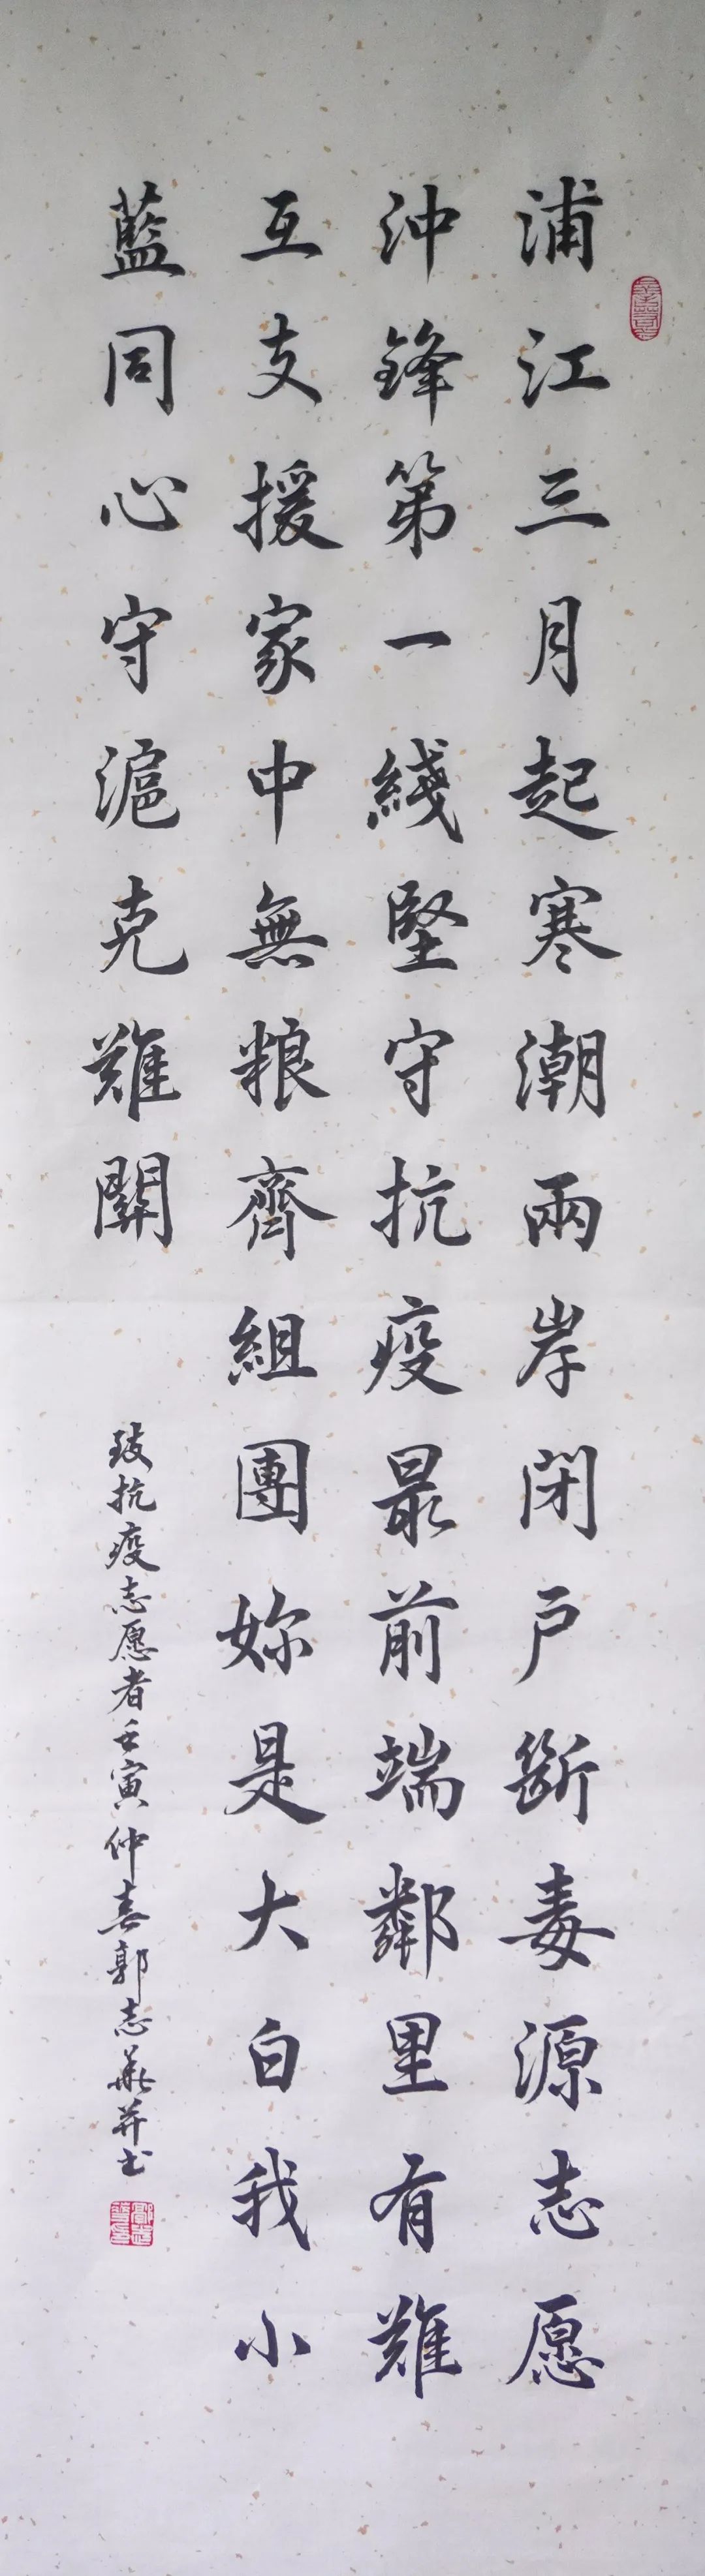 浦江三月起寒潮兩岸閉戶斷毒源志愿
沖鋒第一綫堅守抗疫最前端鄰里有難
互支援家中無粮齊組團妳是大白我小
藍同心守滬克難關
致抗疫志愿者壬寅仲春郭志華并书